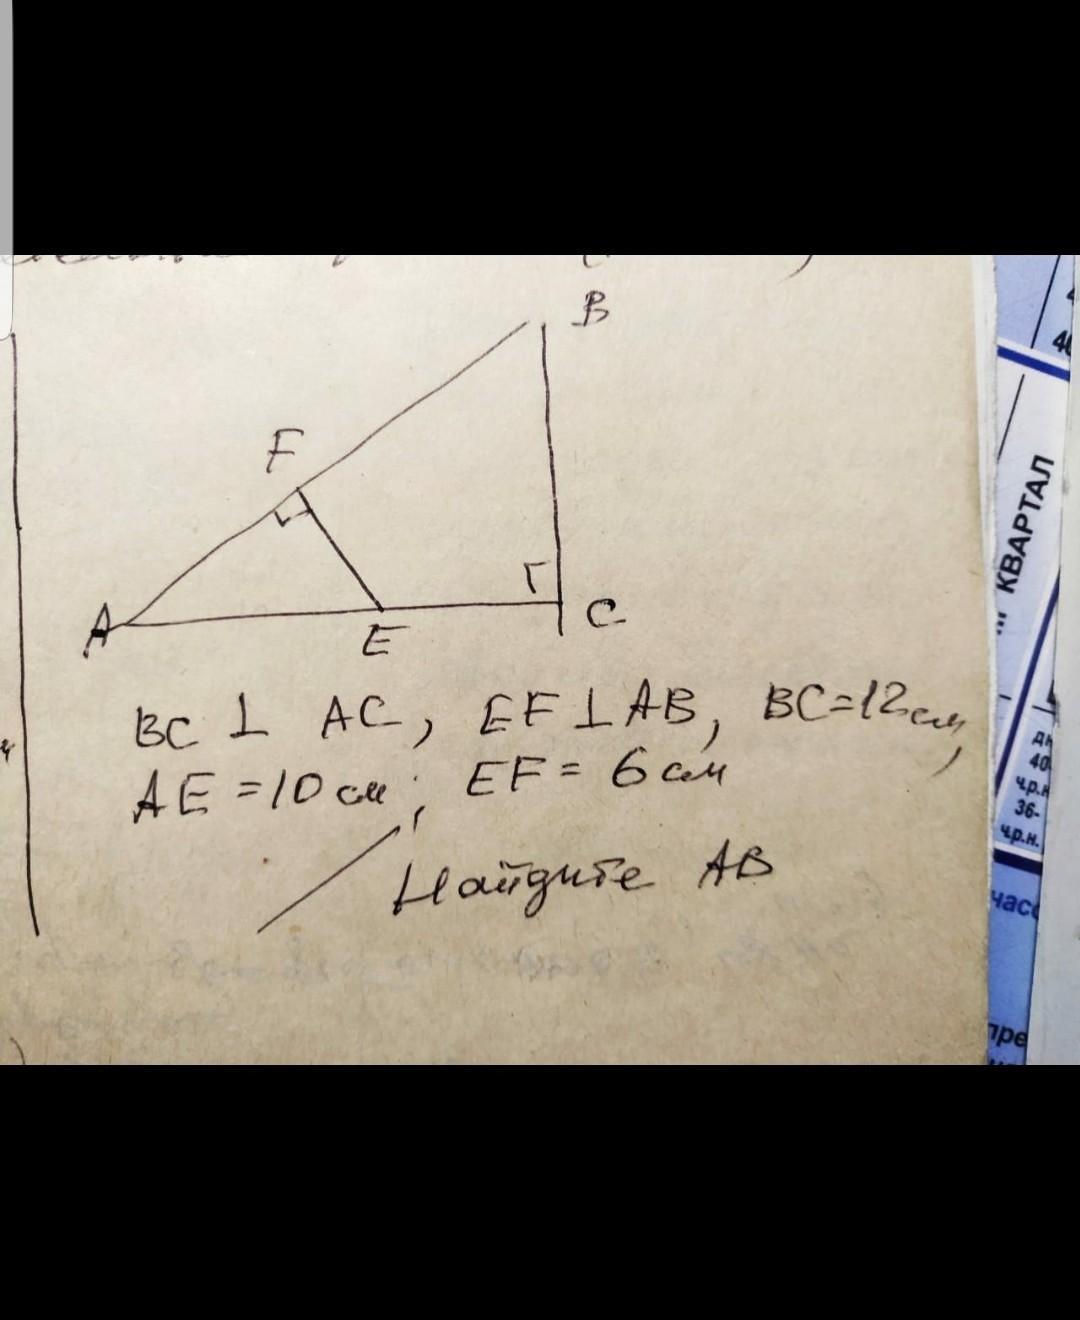 B
F
A
E
C
BC ⊥ AC, EF ⊥ AB, BC=12см,
AE =10 см; EF = 6 см
Найдите AB
КВАРТАЛ
40
ч.р.н.
36-
ч.р.н.